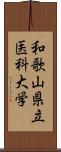 和歌山県立
医科大学